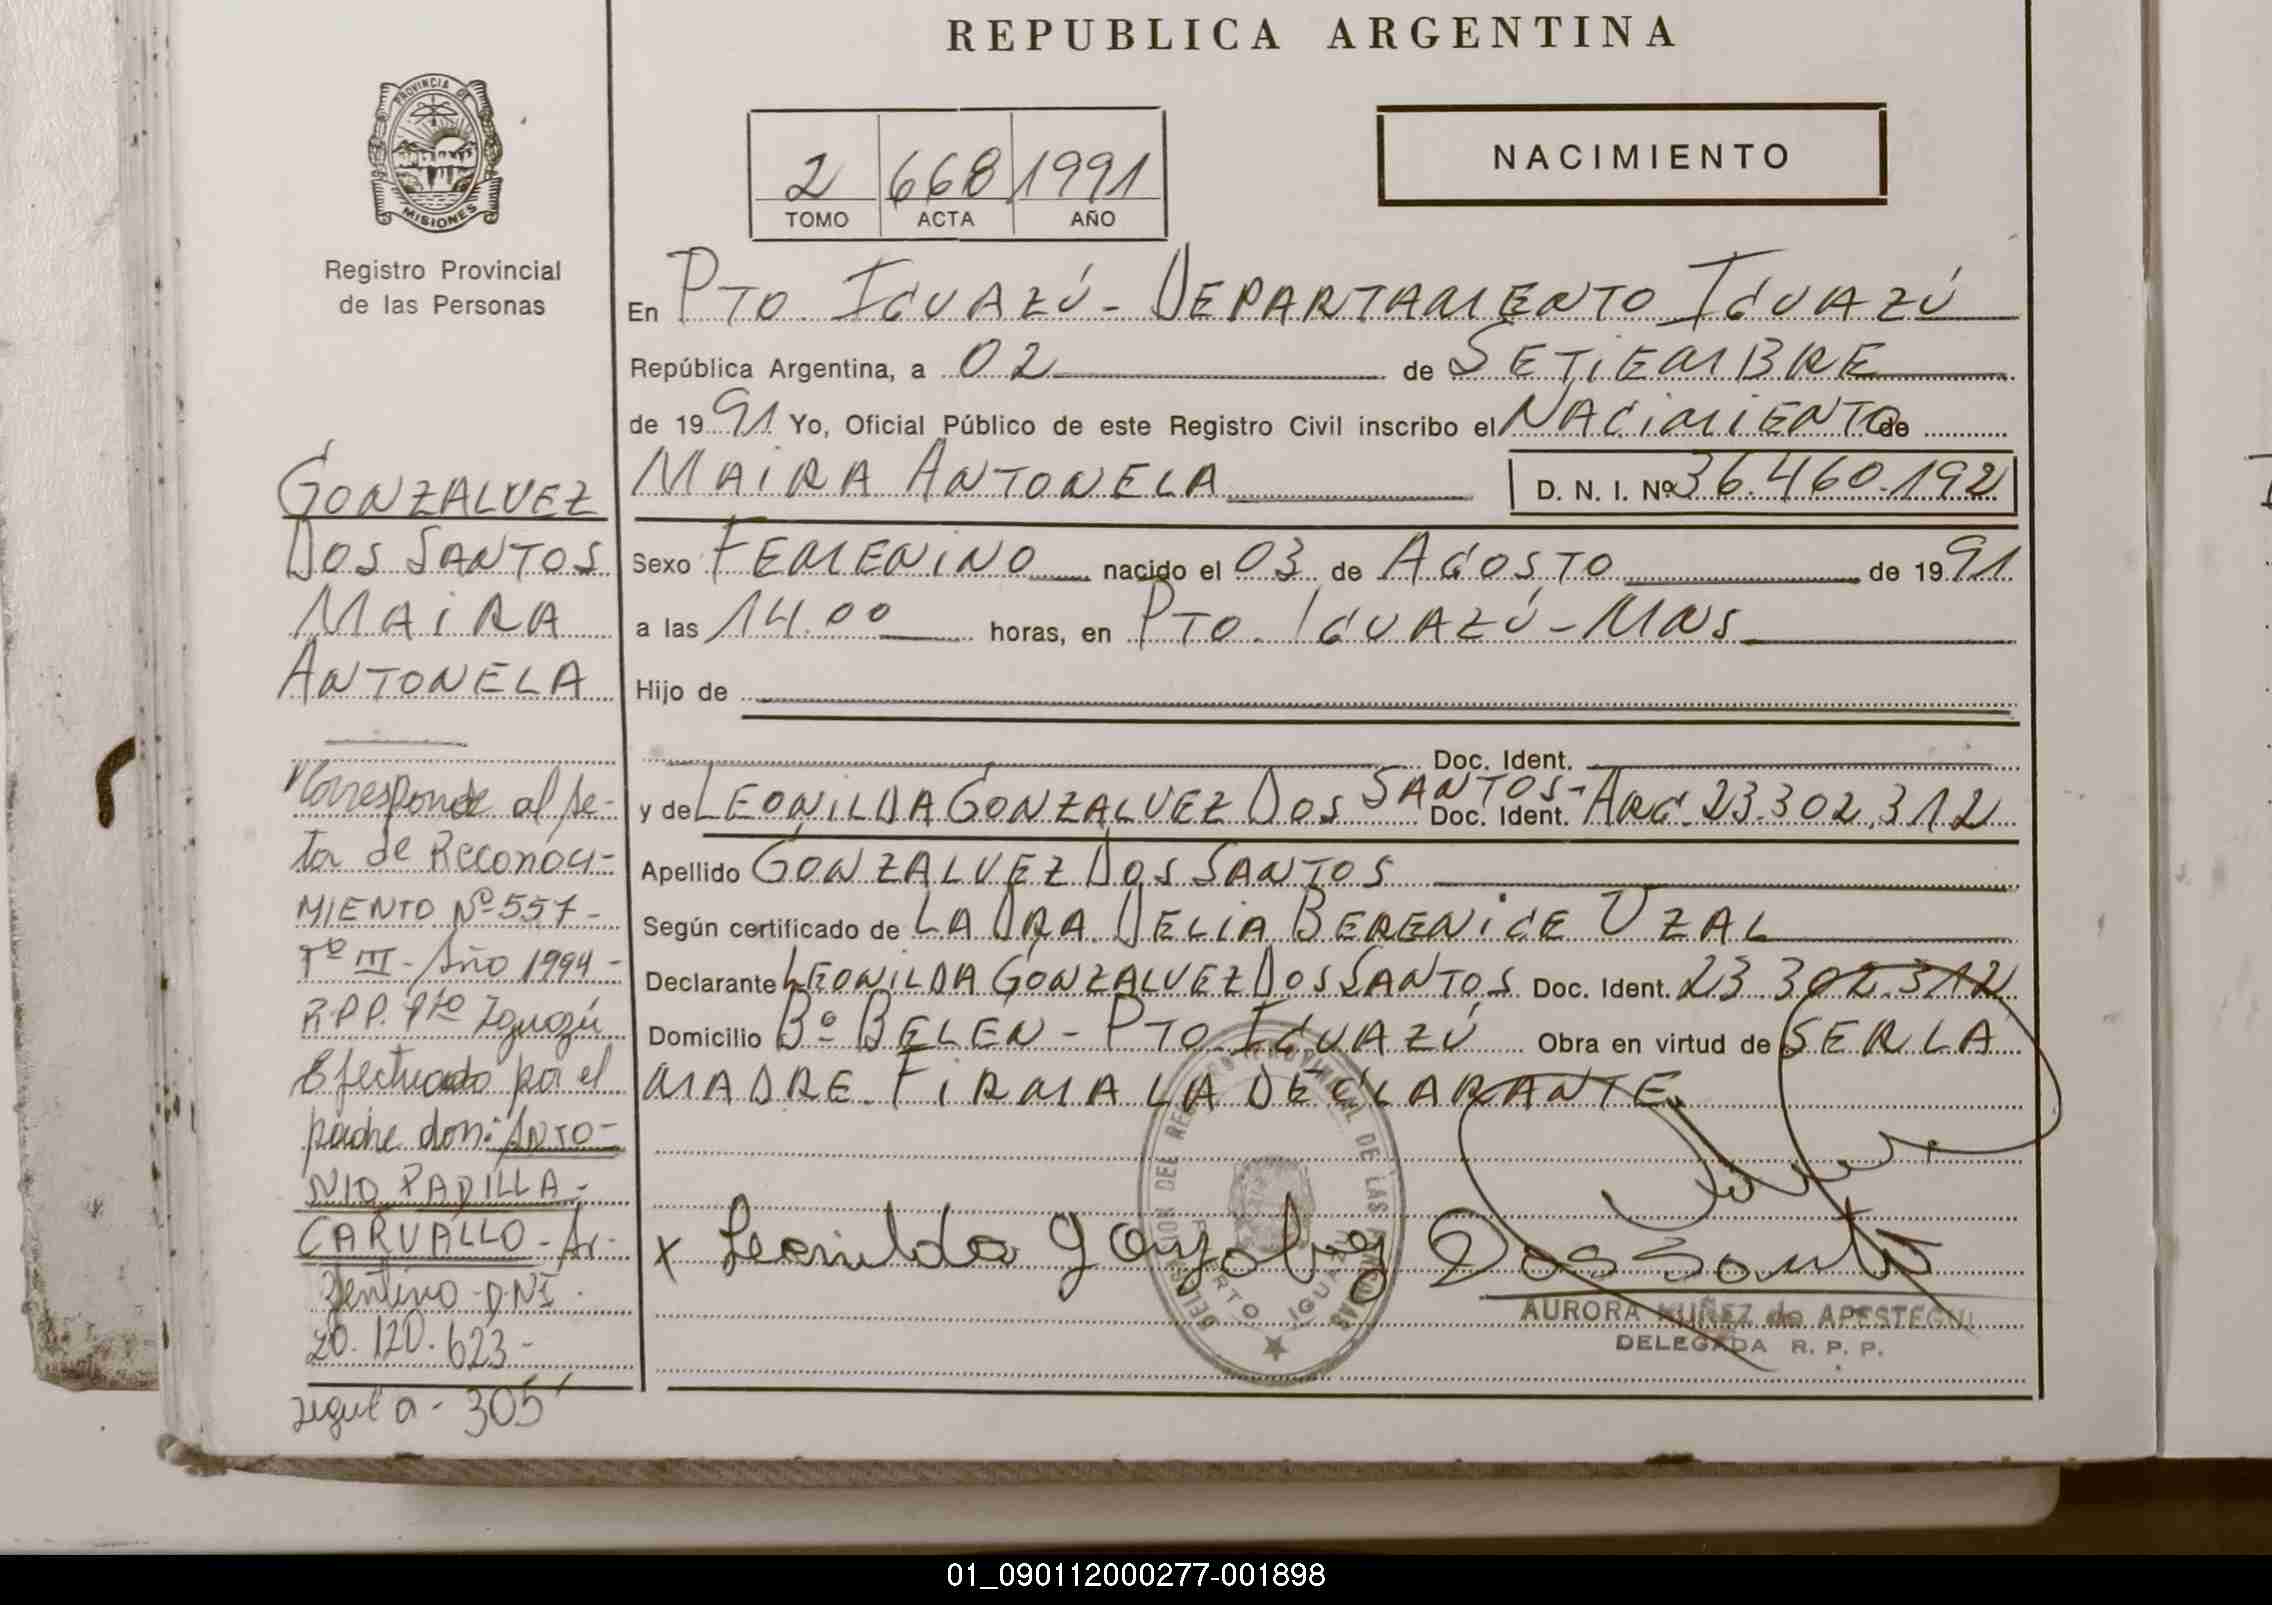 REPUBLICA ARGENTINA
PROVINCIA DE
MISIONES
Registro Provincial
de las Personas
2 668 1991
TOMO ACTA AÑO
NACIMIENTO
En PTO. IGUAZÚ - DEPARTAMENTO IGUAZÚ
República Argentina, a 02 de SETIEMBRE
de 1991 Yo, Oficial Público de este Registro Civil inscribo el NACIMIENTO de
MAIRA ANTONELA D. N. I. Nº 36.460.192
Sexo FEMENINO nacido el 03 de AGOSTO de 1991
a las 14.00 horas, en PTO. IGUAZÚ - MNS
Hijo de
Doc. Ident.
y de LEONILDA GONZALVEZ DOS SANTOS - Doc. Ident. ARG. 23.302.312
Apellido GONZALVEZ DOS SANTOS
Según certificado de LA DRA. DELIA BERENICE UZAL
Declarante LEONILDA GONZALVEZ DOS SANTOS Doc. Ident. 23.302.312
Domicilio Bº BELEN - PTO. IGUAZÚ Obra en virtud de SER LA
MADRE. FIRMA LA DECLARANTE.
x Leonilda Gonzalvez Dos Santos
AURORA NUÑEZ de APESTEGUI
DELEGADA R. P. P.
PUERTO IGUAZU
GONZALVEZ
DOS SANTOS
MAIRA
ANTONELA
Corresponde al Ac-
ta de Reconoci-
MIENTO Nº 557-
Tº III - Año 1994 -
R.P.P. Pto Iguazú
Efectuado por el
padre don: ANTO-
NIO PADILLA-
CARVALLO - Ar-
gentino - D.N.I.
20.120.623 -
305
01_090112000277-001898